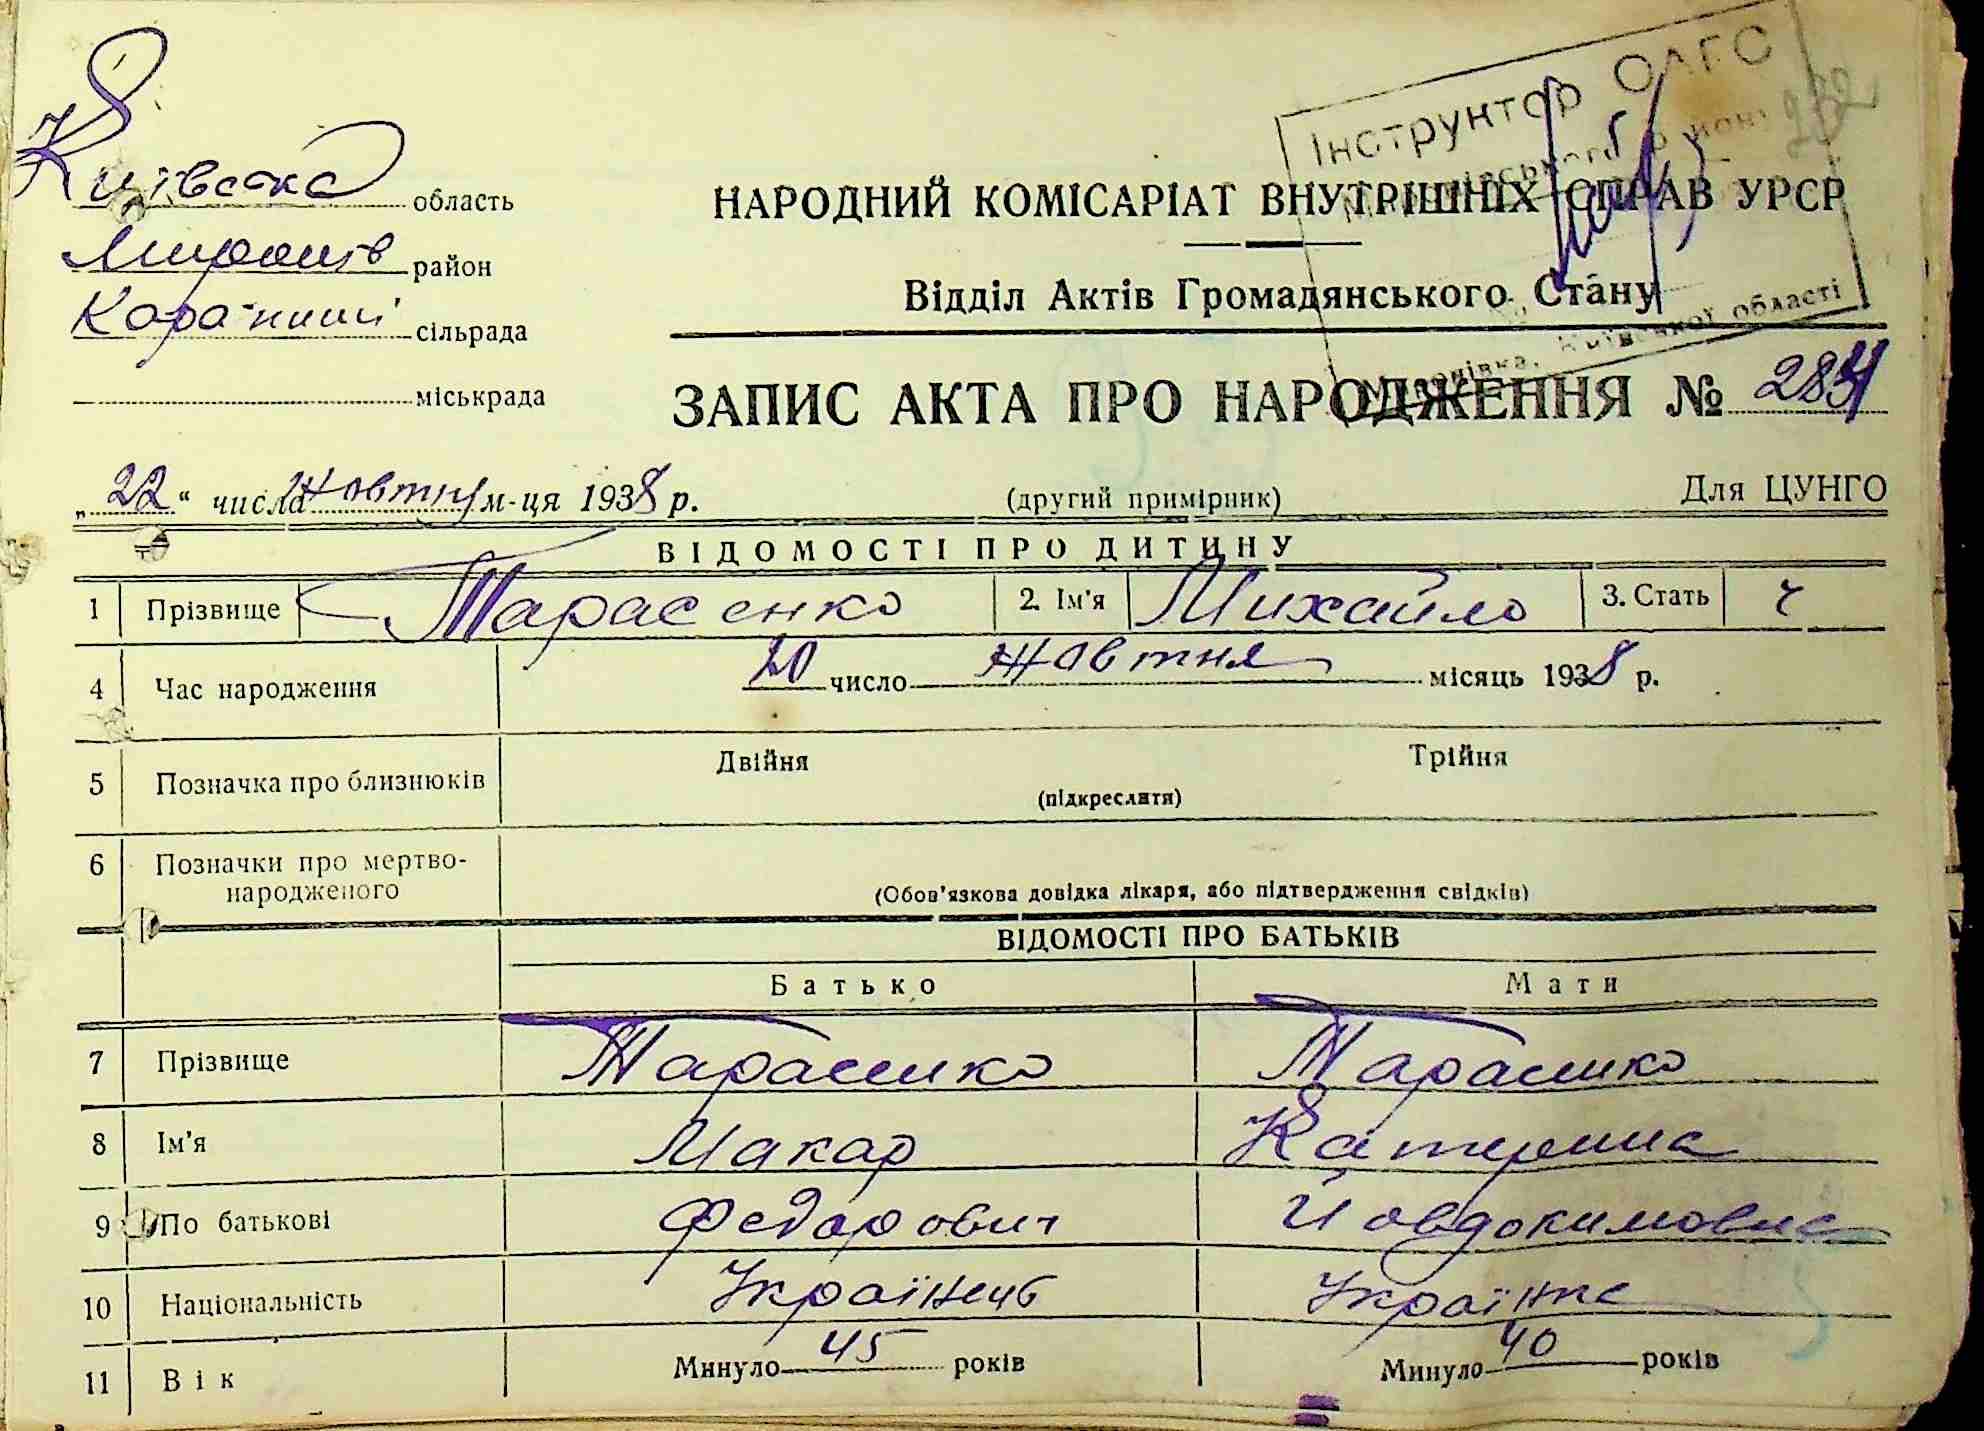 Київська область
Миронів район
сільрада
міськрада
Інструктор ОАГС
Київської області
232
НАРОДНИЙ КОМІСАРІАТ ВНУТРІШНІХ СПРАВ УРСР
Відділ Актів Громадянського Стану
ЗАПИС АКТА ПРО НАРОДЖЕННЯ №
„22“ числа Жовтня м-ця 1938 р.
(другий примірник)
Для ЦУНГО
ВІДОМОСТІ ПРО ДИТИНУ
1 Прізвище Тарасенко 2. Ім'я Михайло 3. Стать ч
4 Час народження 20 число Жовтня місяць 1938 р.
5 Позначка про близнюків Двійня Трійня
(підкреслити)
6 Позначки про мертво-
народженого (Обов'язкова довідка лікаря, або підтвердження свідків)
ВІДОМОСТІ ПРО БАТЬКІВ
Батько Мати
7 Прізвище Тарасенко Тарасенко
8 Ім'я Макар Катерина
9 По батькові Федорович Йовдокимовна
10 Національність Українець Українка
11 Вік Минуло 45 років Минуло 40 років